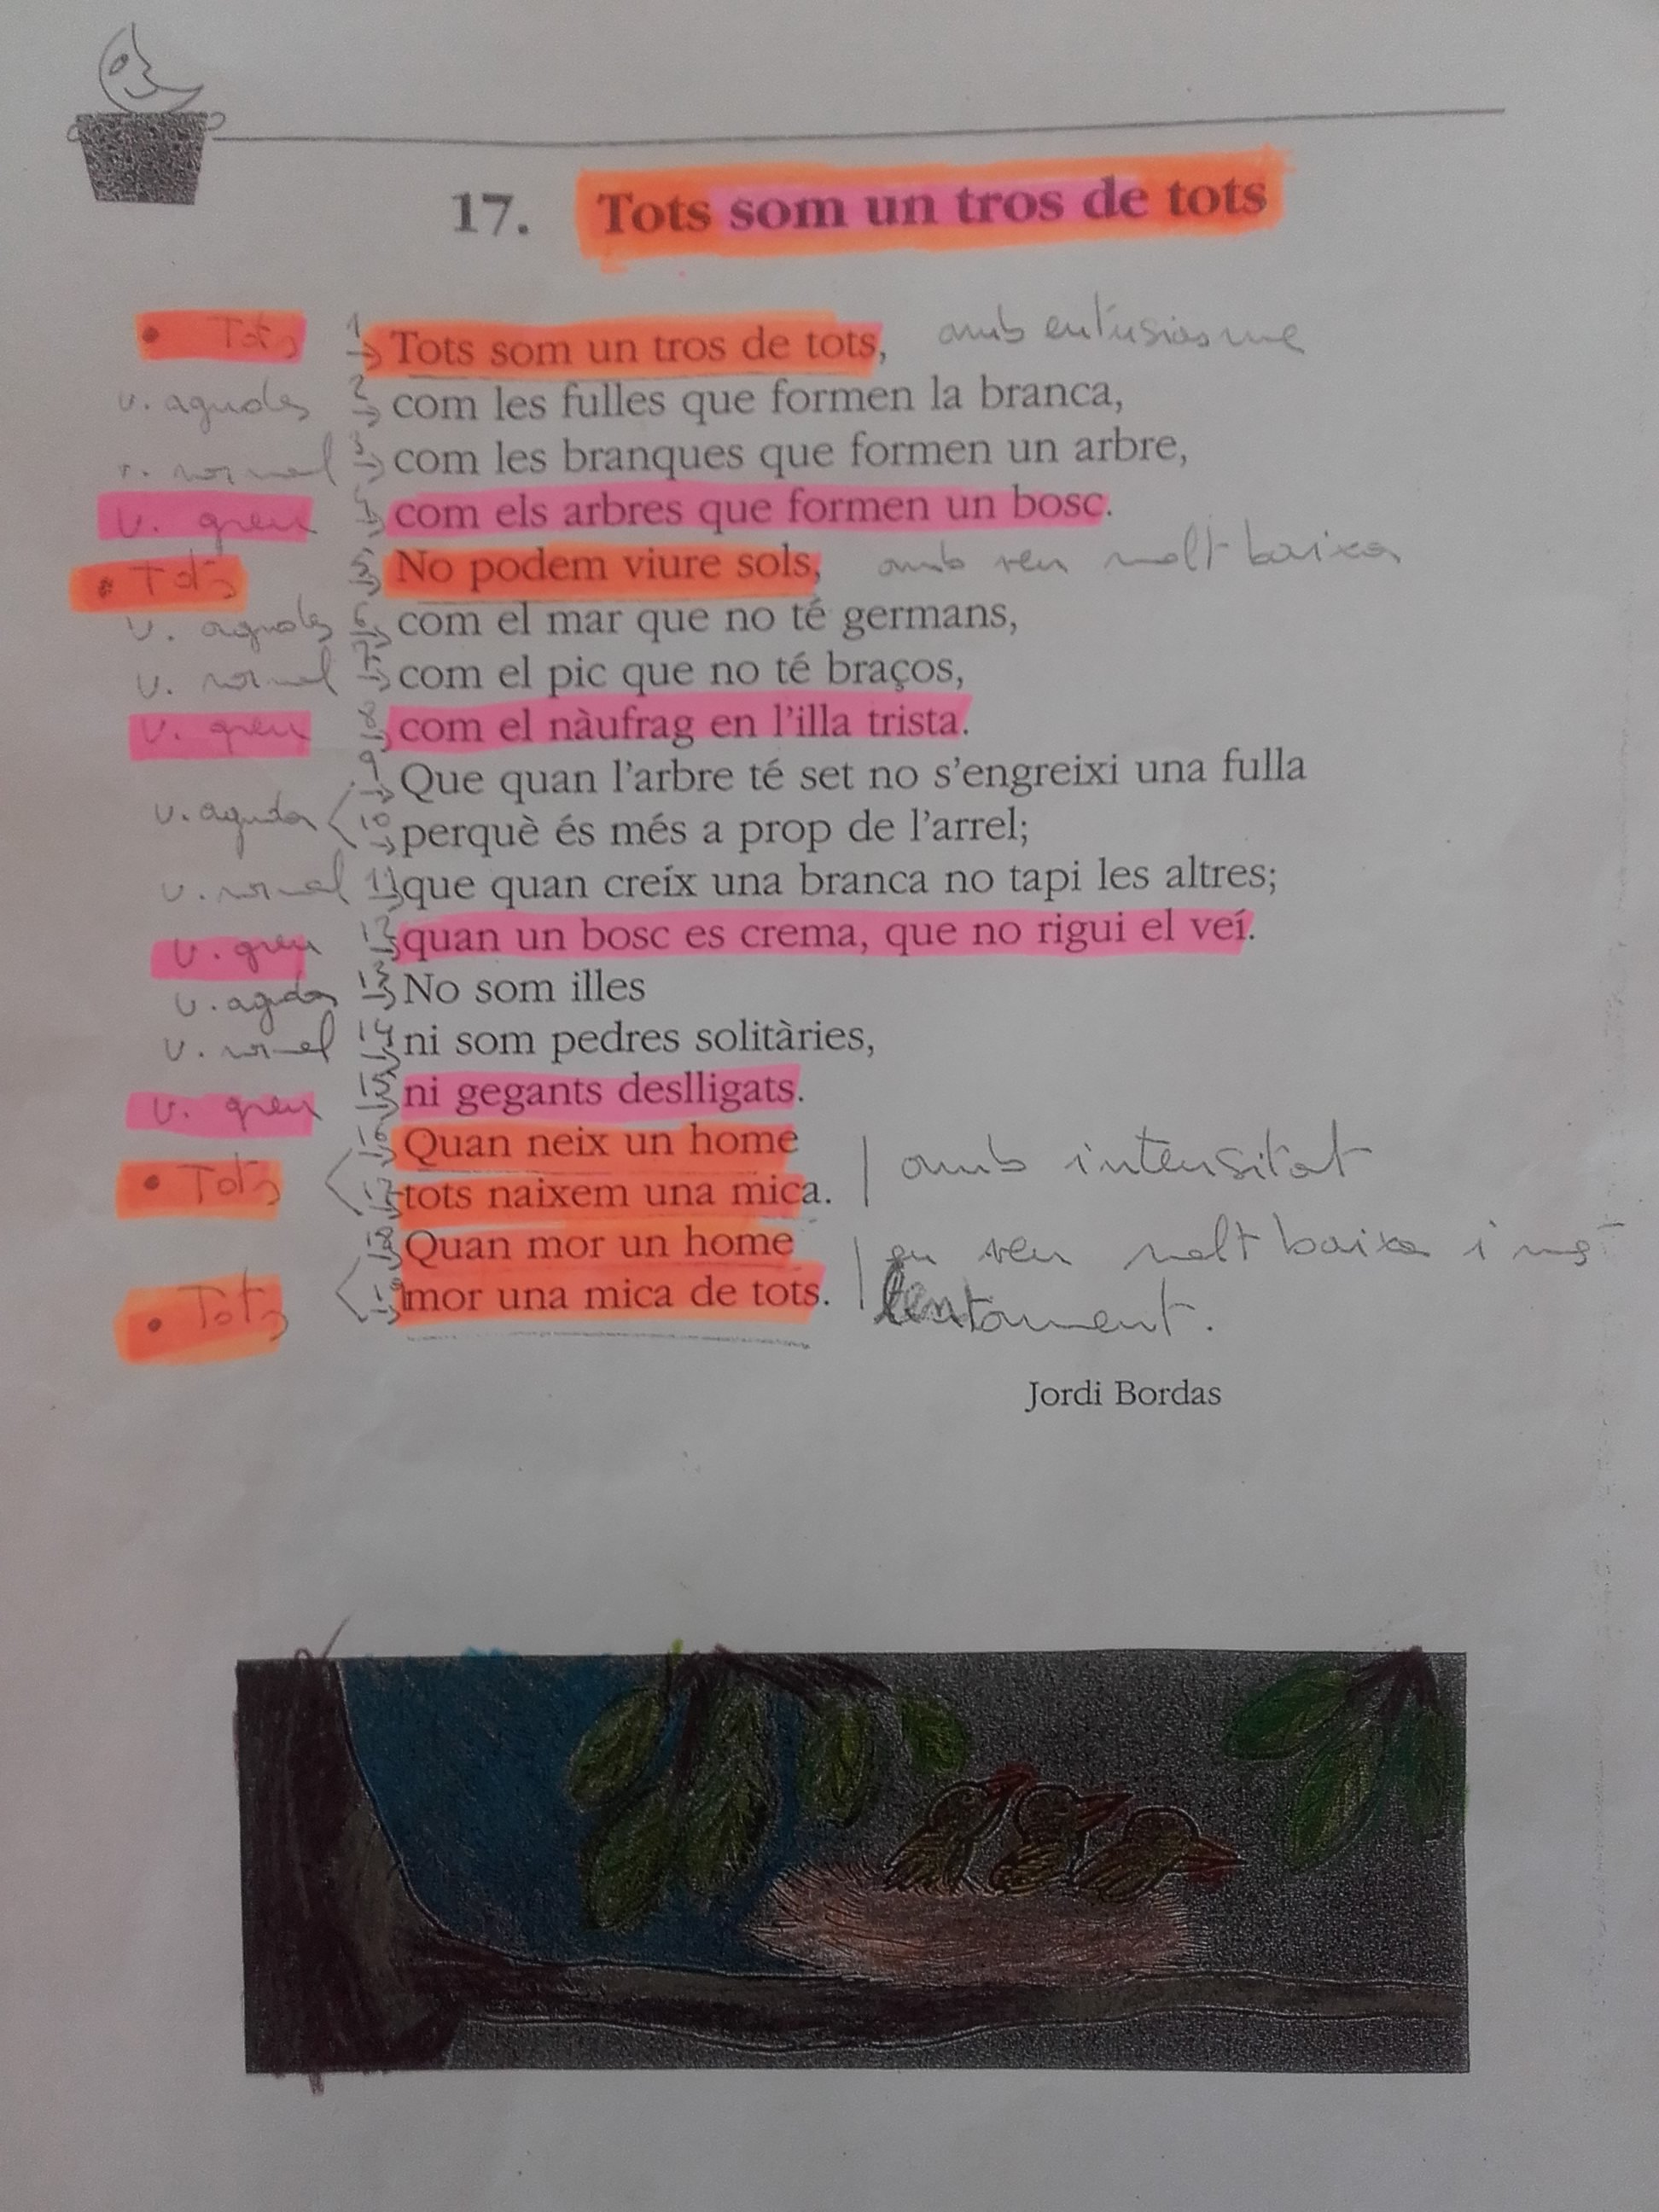 17. Tots som un tros de tots
• Tots 1 Tots som un tros de tots, amb entusiasme
v. agudes 2 com les fulles que formen la branca,
v. normal 3 com les branques que formen un arbre,
v. greu 4 com els arbres que formen un bosc.
• Tots 5 No podem viure sols, amb veu molt baixa
v. agudes 6 com el mar que no té germans,
v. normal 7 com el pic que no té braços,
v. greu 8 com el nàufrag en l'illa trista.
9 Que quan l'arbre té set no s'engreixi una fulla
v. aguda 10 perquè és més a prop de l'arrel;
v. normal 11 que quan creix una branca no tapi les altres;
v. greu 12 quan un bosc es crema, que no rigui el veí.
v. aguda 13 No som illes
v. normal 14 ni som pedres solitàries,
v. greu 15 ni gegants deslligats.
16 Quan neix un home amb intensitat
• Tots 17 tots naixem una mica.
18 Quan mor un home en veu molt baixa i
• Tots 19 mor una mica de tots. lentament.
Jordi Bordas